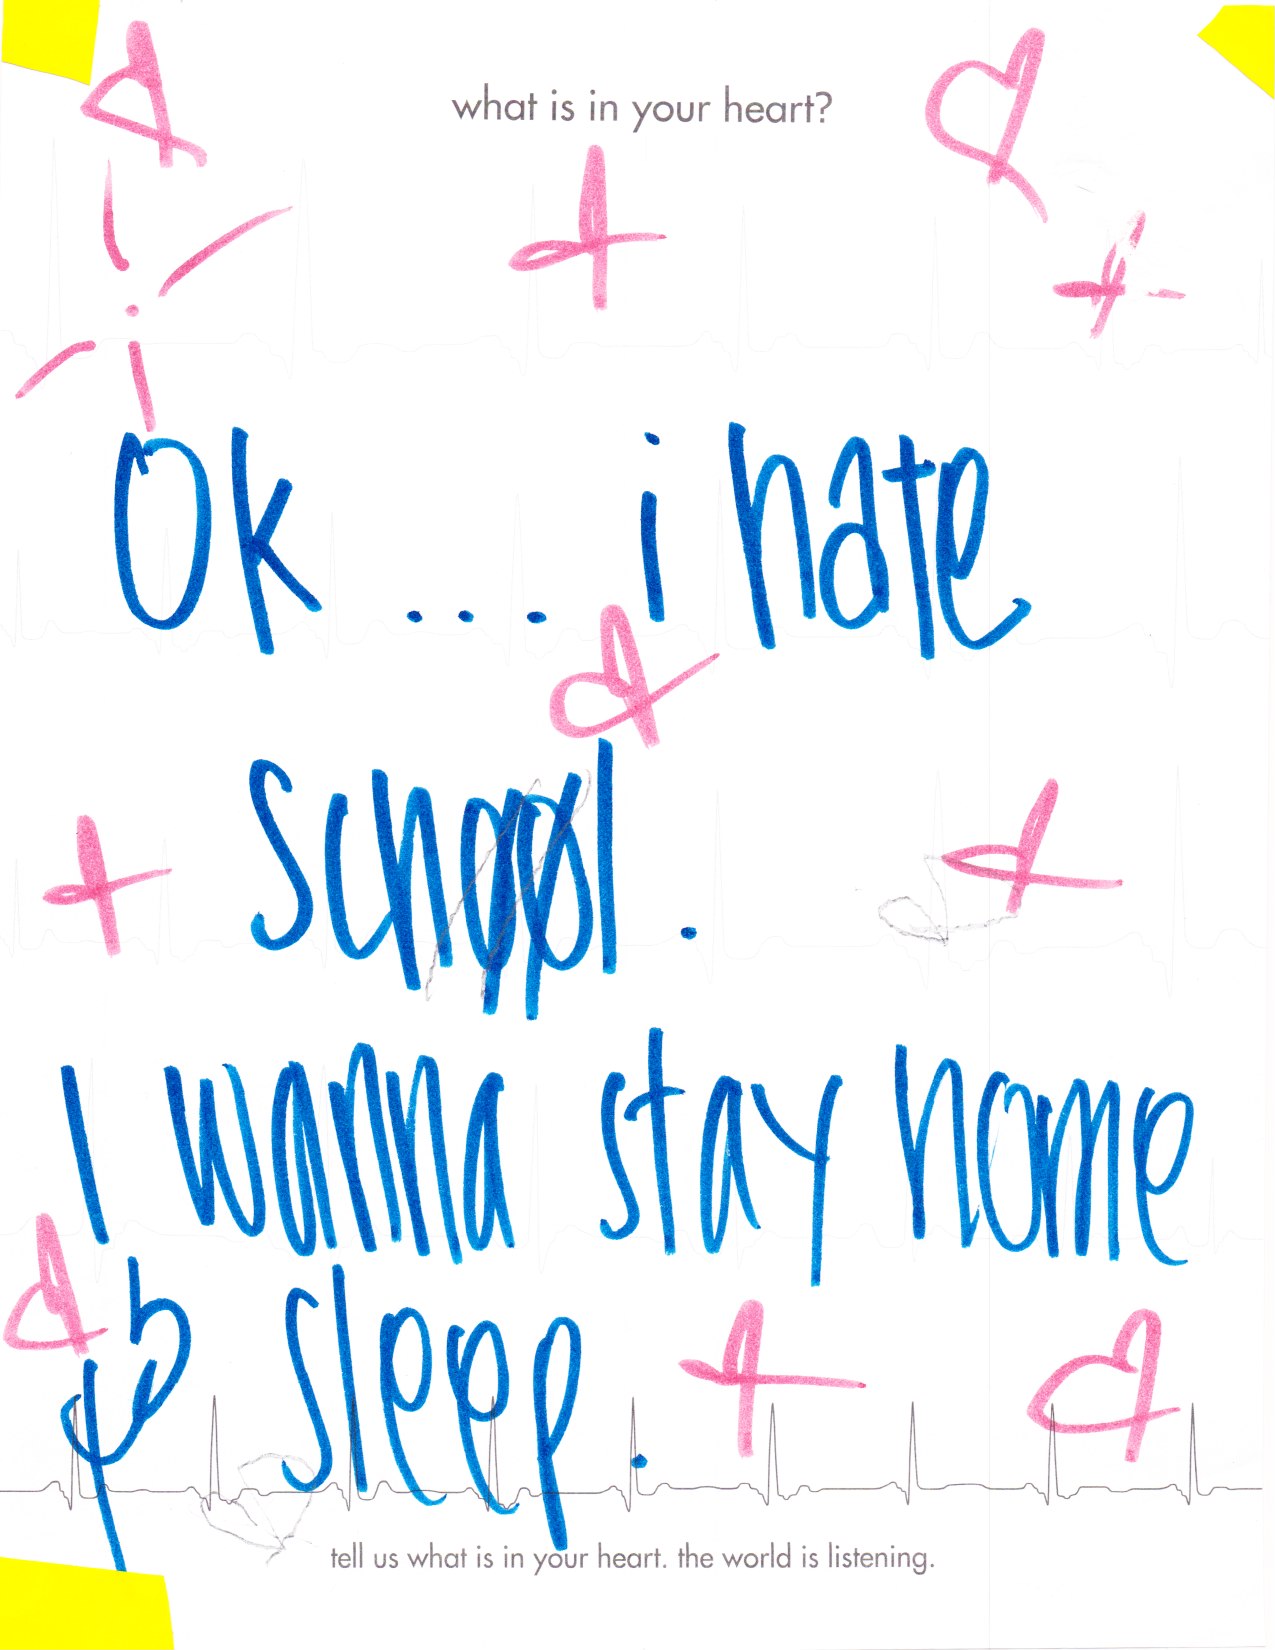 what is in your heart?
Ok ... i hate
school.
I wanna stay home
& sleep.
tell us what is in your heart. the world is listening.